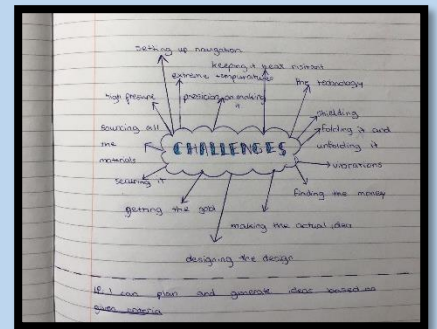 setting up navigation
keeping it heat resistant
extreme temperatures
the technology
high pressure
presicion on making
it
shielding
sourcing all
the
materials
CHALLENGES
folding it and
unfolding it
vibrations
securing it
finding the money
getting the gold
making the actual idea
designing the design
If I can plan and generate ideas based on
given criteria